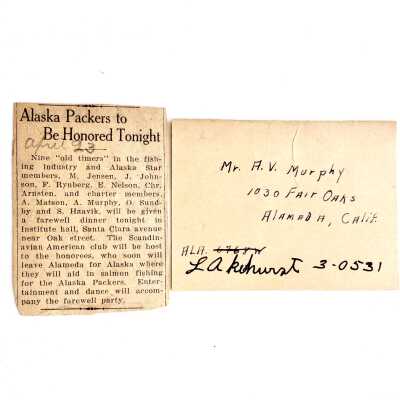 Alaska Packers to
Be Honored Tonight
April 23
Nine "old timers" in the fish-
ing industry and Alaska Star
members, M. Jensen, J. John-
son, F. Rynberg, E. Nelson, Chr.
Arnsten, and charter members,
A. Matson, A. Murphy, O. Sund-
by and S. Haavik, will be given
a farewell dinner tonight in
Institute hall, Santa Clara avenue
near Oak street. The Scandin-
avian American club will be host
to the honorees, who soon will
leave Alameda for Alaska where
they will aid in salmon fishing
for the Alaska Packers. Enter-
tainment and dance will accom-
pany the farewell party.
Mr. A.V. Murphy
1030 Fair Oaks
Alameda, Calif.
ALA.
L Akehurst 3-0531